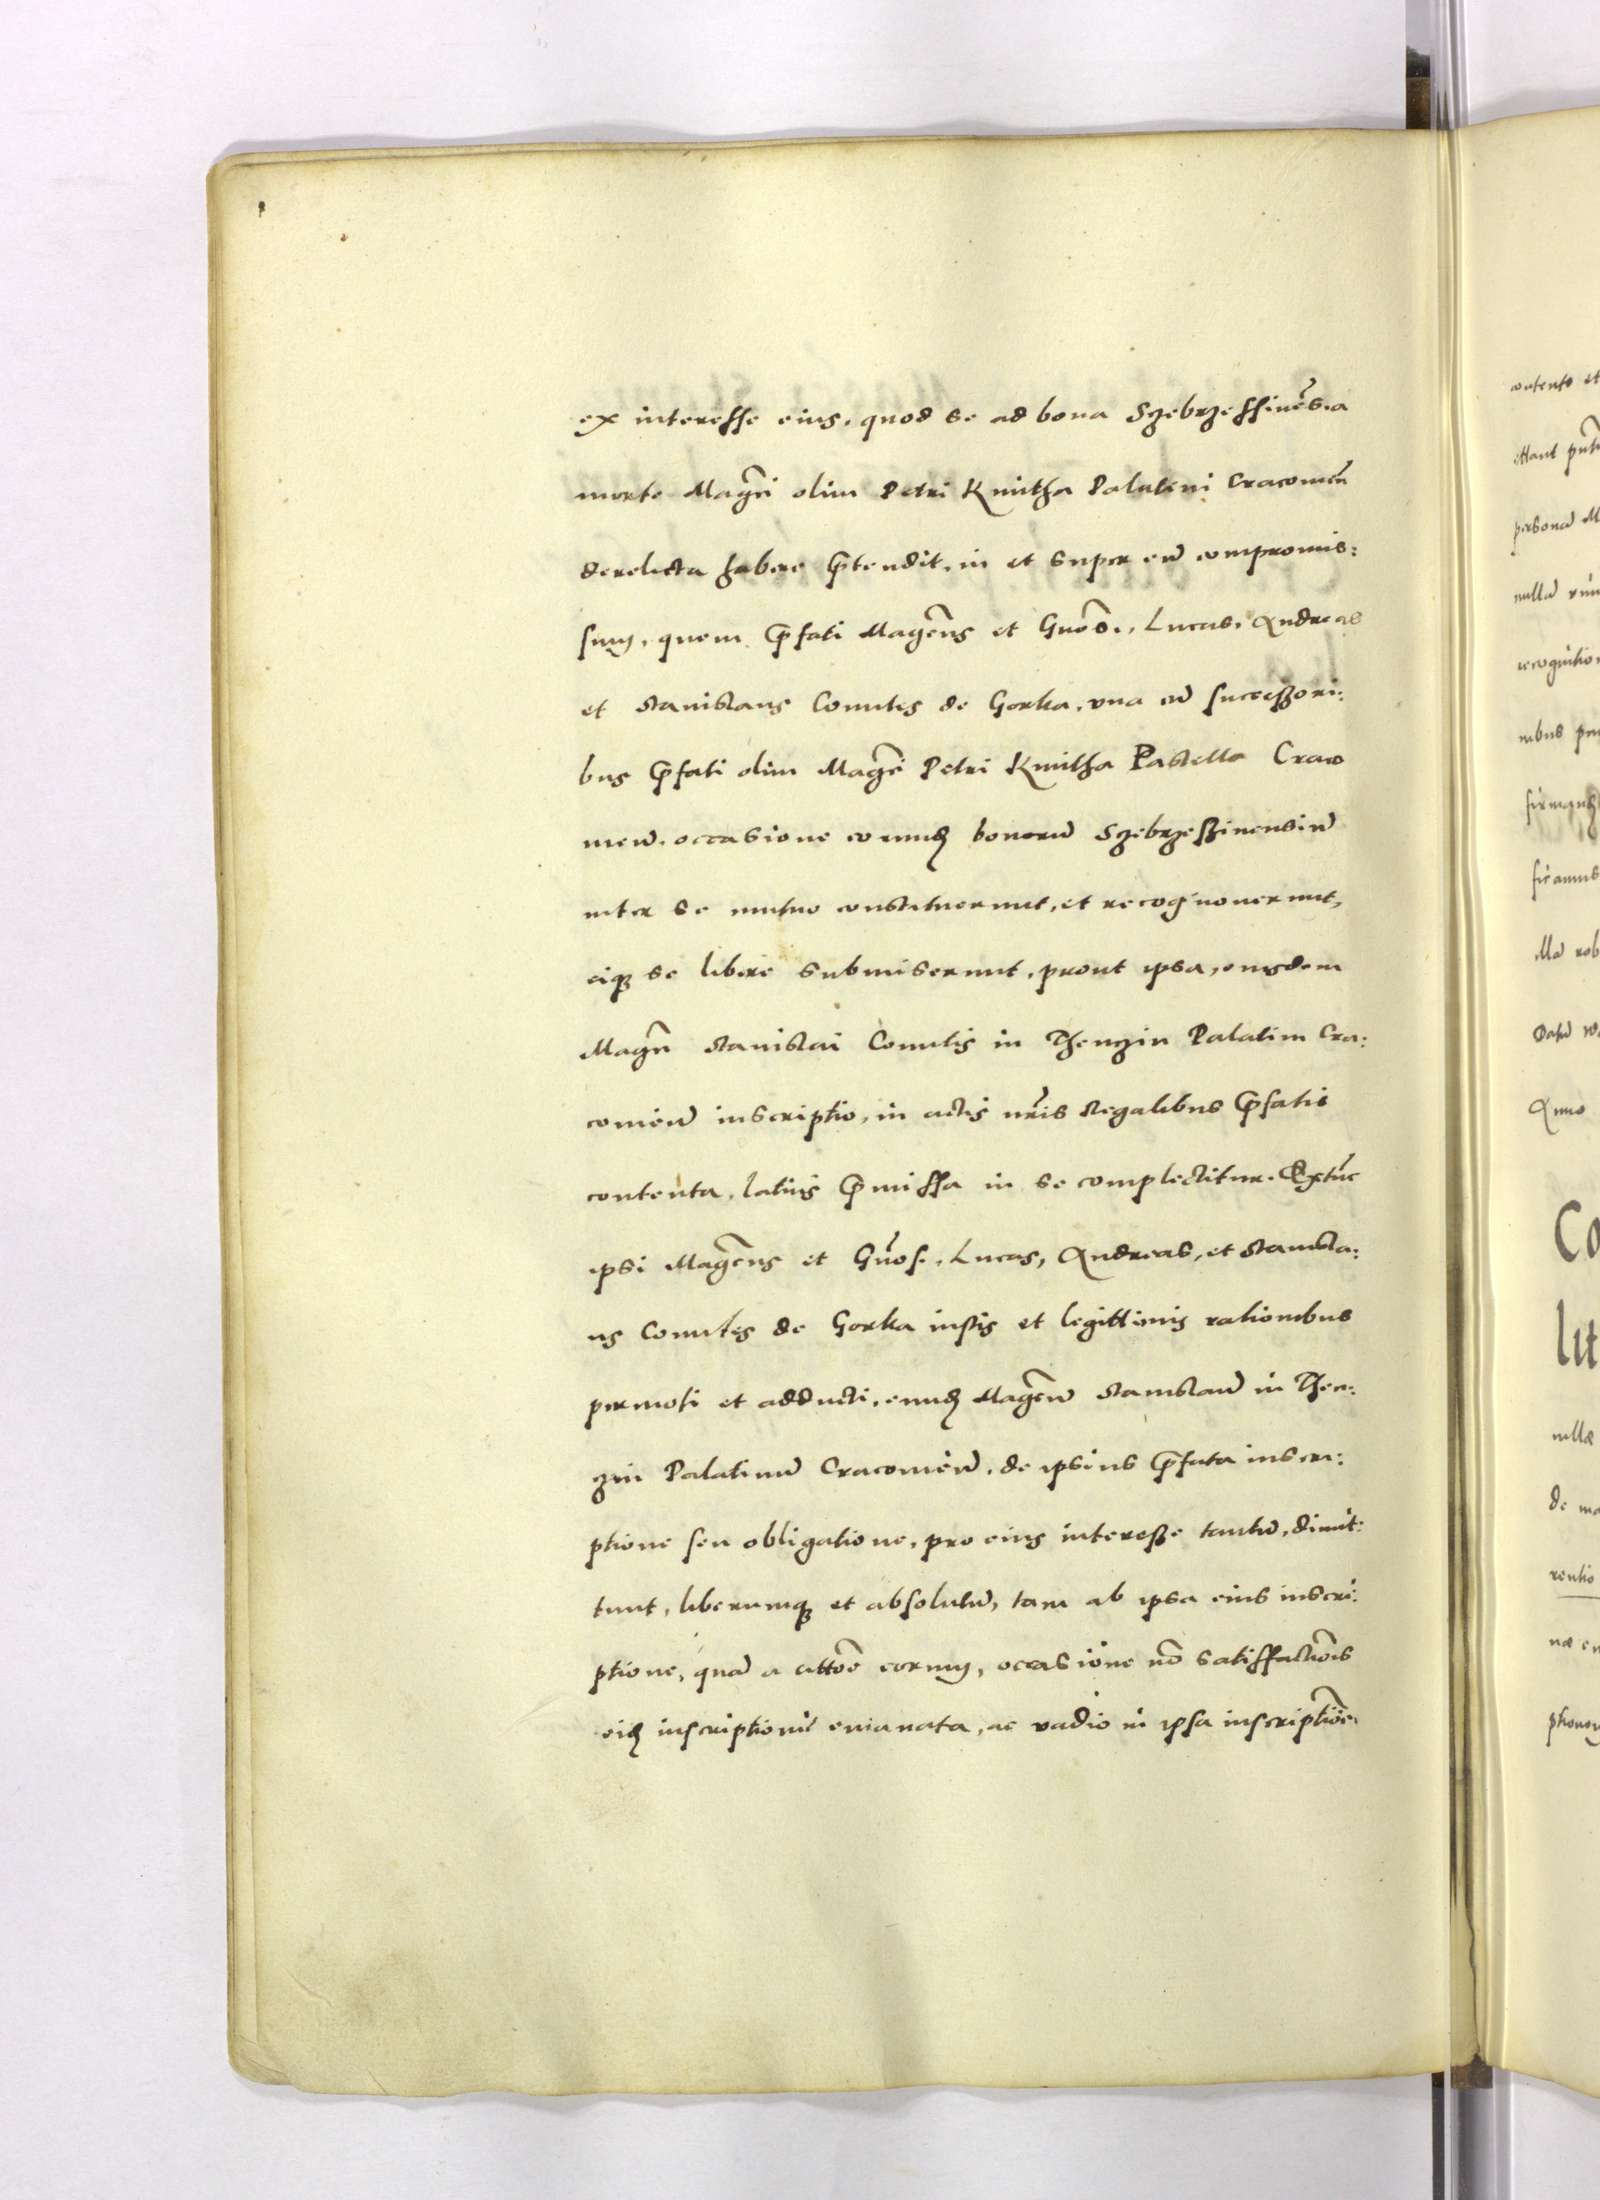 ex interesse eius, quod se ad bona Szebrzessinēs. a
morte Magci olim Petri Kmitha Palatini Cracouieñ
derelicta habere p̄tendit, in et super eū compromis:
sum, quem p̄fati Magcus et Gñosi, Lucas, Andreas
et Stanislaus Comites de Gorka, vna cū successori:
bus p̄fati olim Magci Petri Kmitha Castella Craco
uieñ. occasione eorundꝫ bonorū Szebrzeszinensiū
inter se mutuo constituerunt, et recognouerunt,
eiqꝫ se libere submiserunt, prout ipsa, eiusdem
Magci Stanislai Comitis in Thenczin Palatini Cra:
couieñ inscriptio, in actis nr̄is Regalibus p̄fatis
contenta, latius p̄missa in se complectitur. Extūc
ipsi Magcus et Gñosi, Lucas, Andreas, et Stanisla:
us Comites de Gorka iustis et legittimis rationibus
permoti et adducti, eundꝫ Magcū Stanislaū in Then:
zin Palatinū Cracouieñ, de ipsius p̄fata inscri:
ptione seu obligatione, pro eius interesse tantū, dimit:
tunt, liberumqꝫ et absolutū, tam ab ipsa eius inscri:
ptione, quā a cittōe eorum, occasione nō satisfactiōis
eidꝫ inscriptioni emanata, ac vadio in ipsa inscriptiōe
contento et
personā
nullā
recognitio
Datū
Anno
Co
lit
nullæ
de